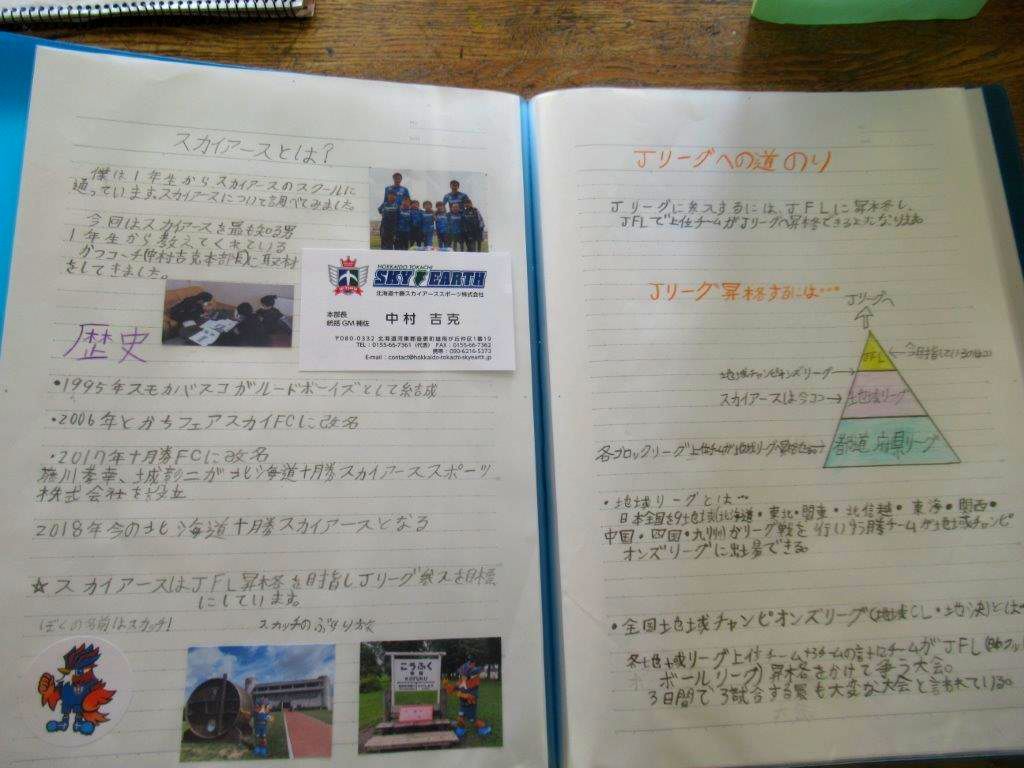 スカイアースとは?
僕は1年生からスカイアースのスクールに
通っています。スカイアースについて調べてみました。
今回はスカイアースを最も知る男
1年生から教えてくれている
ガココーチ(中村吉克本部長)に取材
をしてきました。
HOKKAIDO TOKACHI
SKY EARTH
北海道十勝スカイアーススポーツ株式会社
本部長
統括GM補佐
中村 吉克
歴史
・1995年スモカバスコガルードボーイズとして結成
・2006年とかちフェアスカイFCに改名
・2017年十勝FCに改名
藤川孝幸、城彰二が北海道十勝スカイアーススポーツ
株式会社を設立
2018年今の北海道十勝スカイアースとなる
☆スカイアースはJFL昇格を目指しJリーグ参入を目標
にしています。
ぼくの名前はスカッチ!
スカッチのぶらり旅
こうふく
幸福
KOFUKU
Jリーグへの道のり
Jリーグに参入するには、JFLに昇格し、
JFLで上位チームがJリーグへ昇格できるようになりました
Jリーグ昇格するには…
Jリーグへ
JFL
←今目指している
地域チャンピオンズリーグ→
スカイアースは今ココ→
地域リーグ
各ブロックリーグ上位チームが地域リーグ
都道府県リーグ
・地域リーグとは…
日本全国を9地域(北海道・東北・関東・北信越・東海・関西・
中国・四国・九州)がリーグ戦を行い優勝チームが地域チャンピ
オンズリーグに出場できる。
・全国地域チャンピオンズリーグ(地域CL・地決)とは…
各地域リーグ上位チーム がJFL
ボールリーグ)昇格をかけて争う大会。
3日間で3試合する最も大変な大会と言われている。